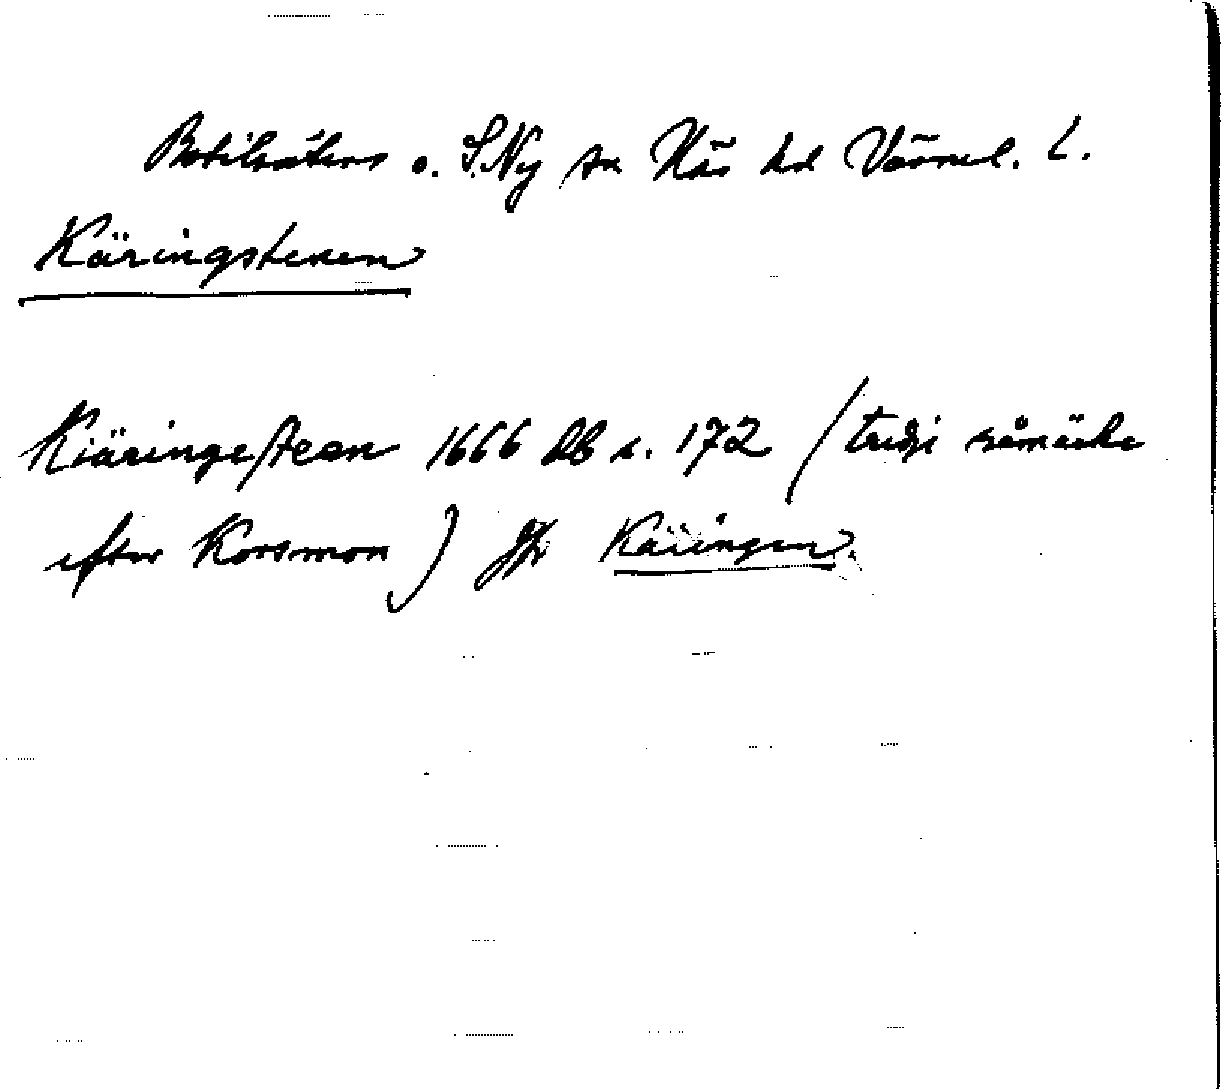 Botilsäters o. S.Ny sn Näs hd Värml. L.
Käringstenen
Kiäringesteen 1666 Db s. 172 (tredje råmärke
efter Korsmon) Jfr Käringen.